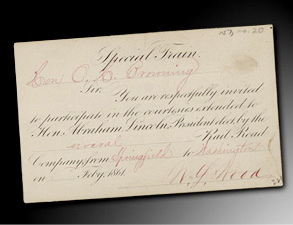 Special Train.
Hon O. H. Browning
Sir.
You are respectfully invited
to participate in the courtesies extended to
Hon. Abraham Lincoln, President elect, by the
several Rail Road
Companies, from Springfield to Washington
on Feby. 1861.
W. S. Wood